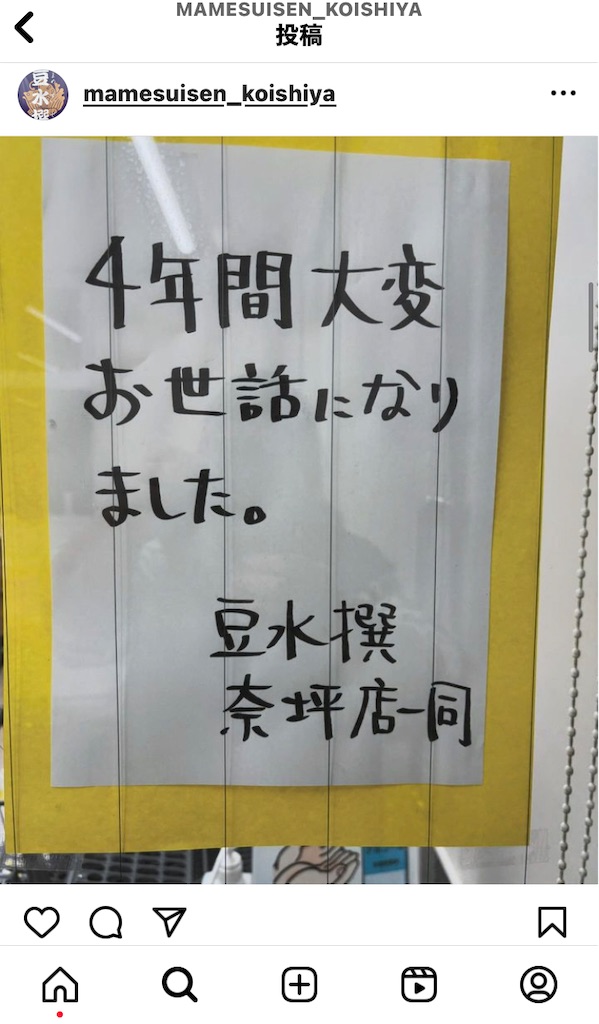 MAMESUISEN_KOISHIYA
投稿
豆水撰
mamesuisen_koishiya
4年間大変
お世話になり
ました。
豆水撰
奈坪店一同